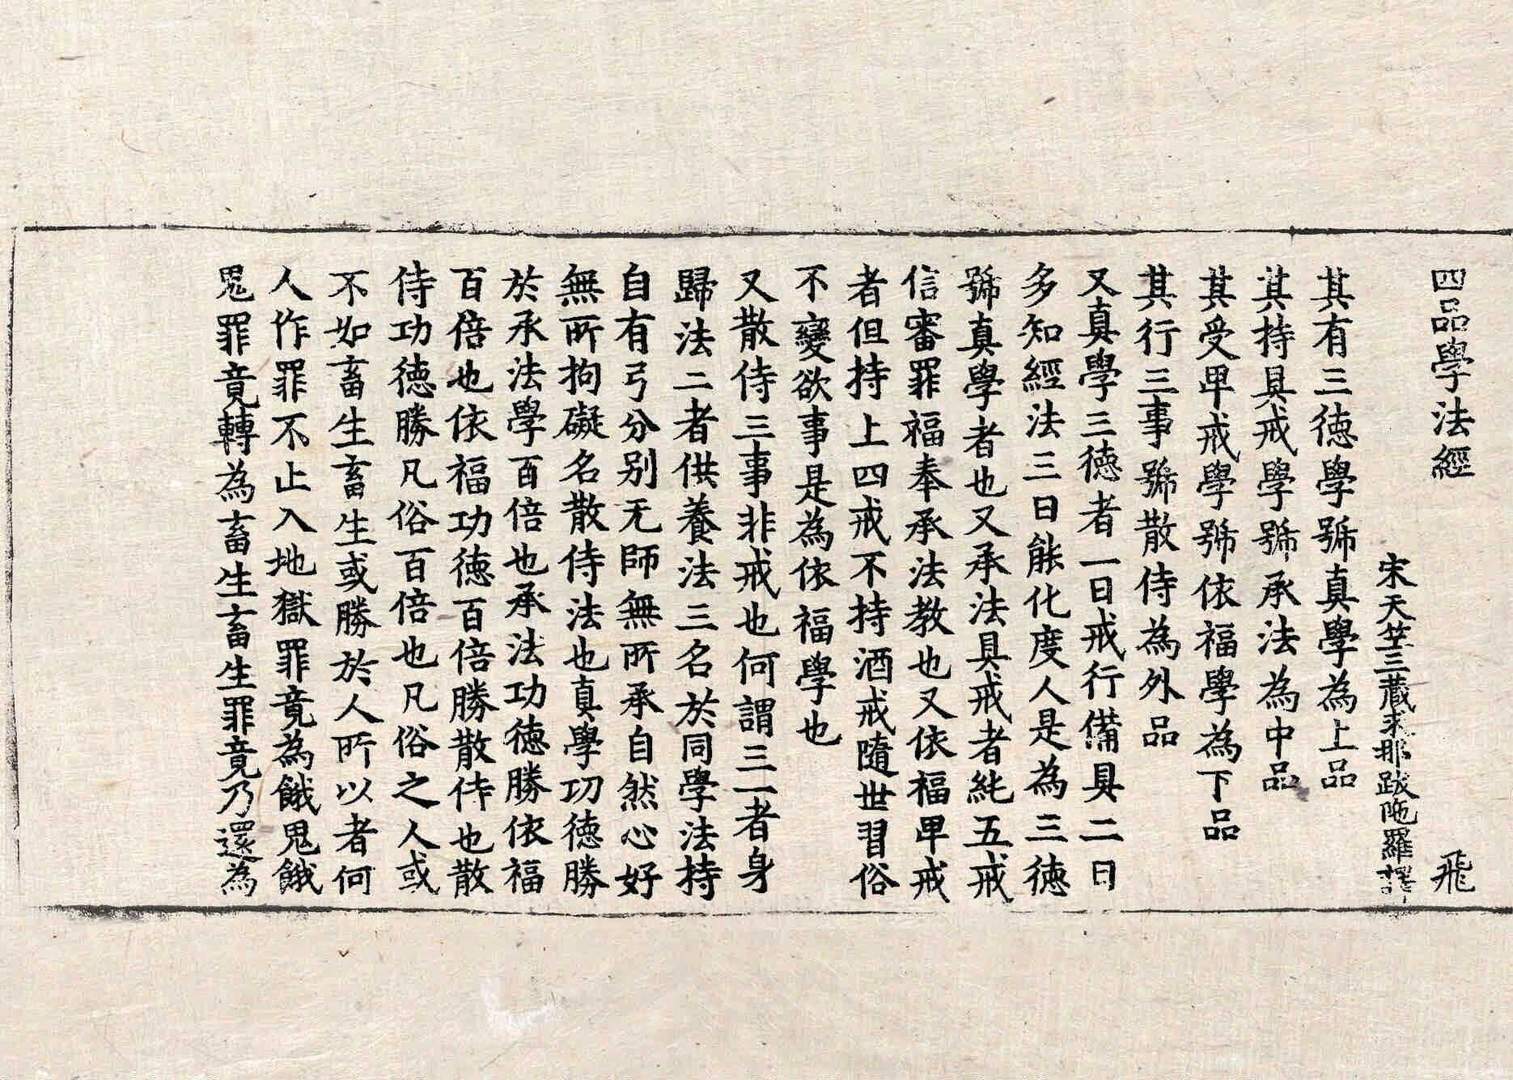 四品學法經 飛
宋天竺三藏求那跋陁羅譯
其有三德學號真學為上品
其持具戒學號承法為中品
其受甲戒學號依福學為下品
其行三事號散侍為外品
又真學三德者一曰戒行備具二曰
多知經法三曰能化度人是為三德
號真學者也又承法具戒者純五戒
信審罪福奉承法教也又依福甲戒
者但持上四戒不持酒戒隨世習俗
不變欲事是為依福學也
又散侍三事非戒也何謂三一者身
歸法二者供養法三名於同學法持
自有弓分别无師無所承自然心好
無所拘礙名散侍法也真學功德勝
於承法學百倍也承法功德勝依福
百倍也依福功德百倍勝散侍也散
侍功德勝凡俗百倍也凡俗之人或
不如畜生畜生或勝於人所以者何
人作罪不止入地獄罪竟為餓鬼餓
鬼罪竟轉為畜生畜生罪竟乃還為